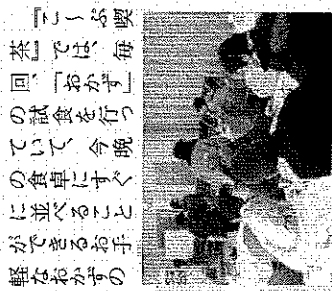 『こ～ぷ喫
茶』では、毎
回、「おかず」
の試食を行っ
ていて、今晩
の食卓にすぐ
に並べること
ができるお手
軽なおかずの